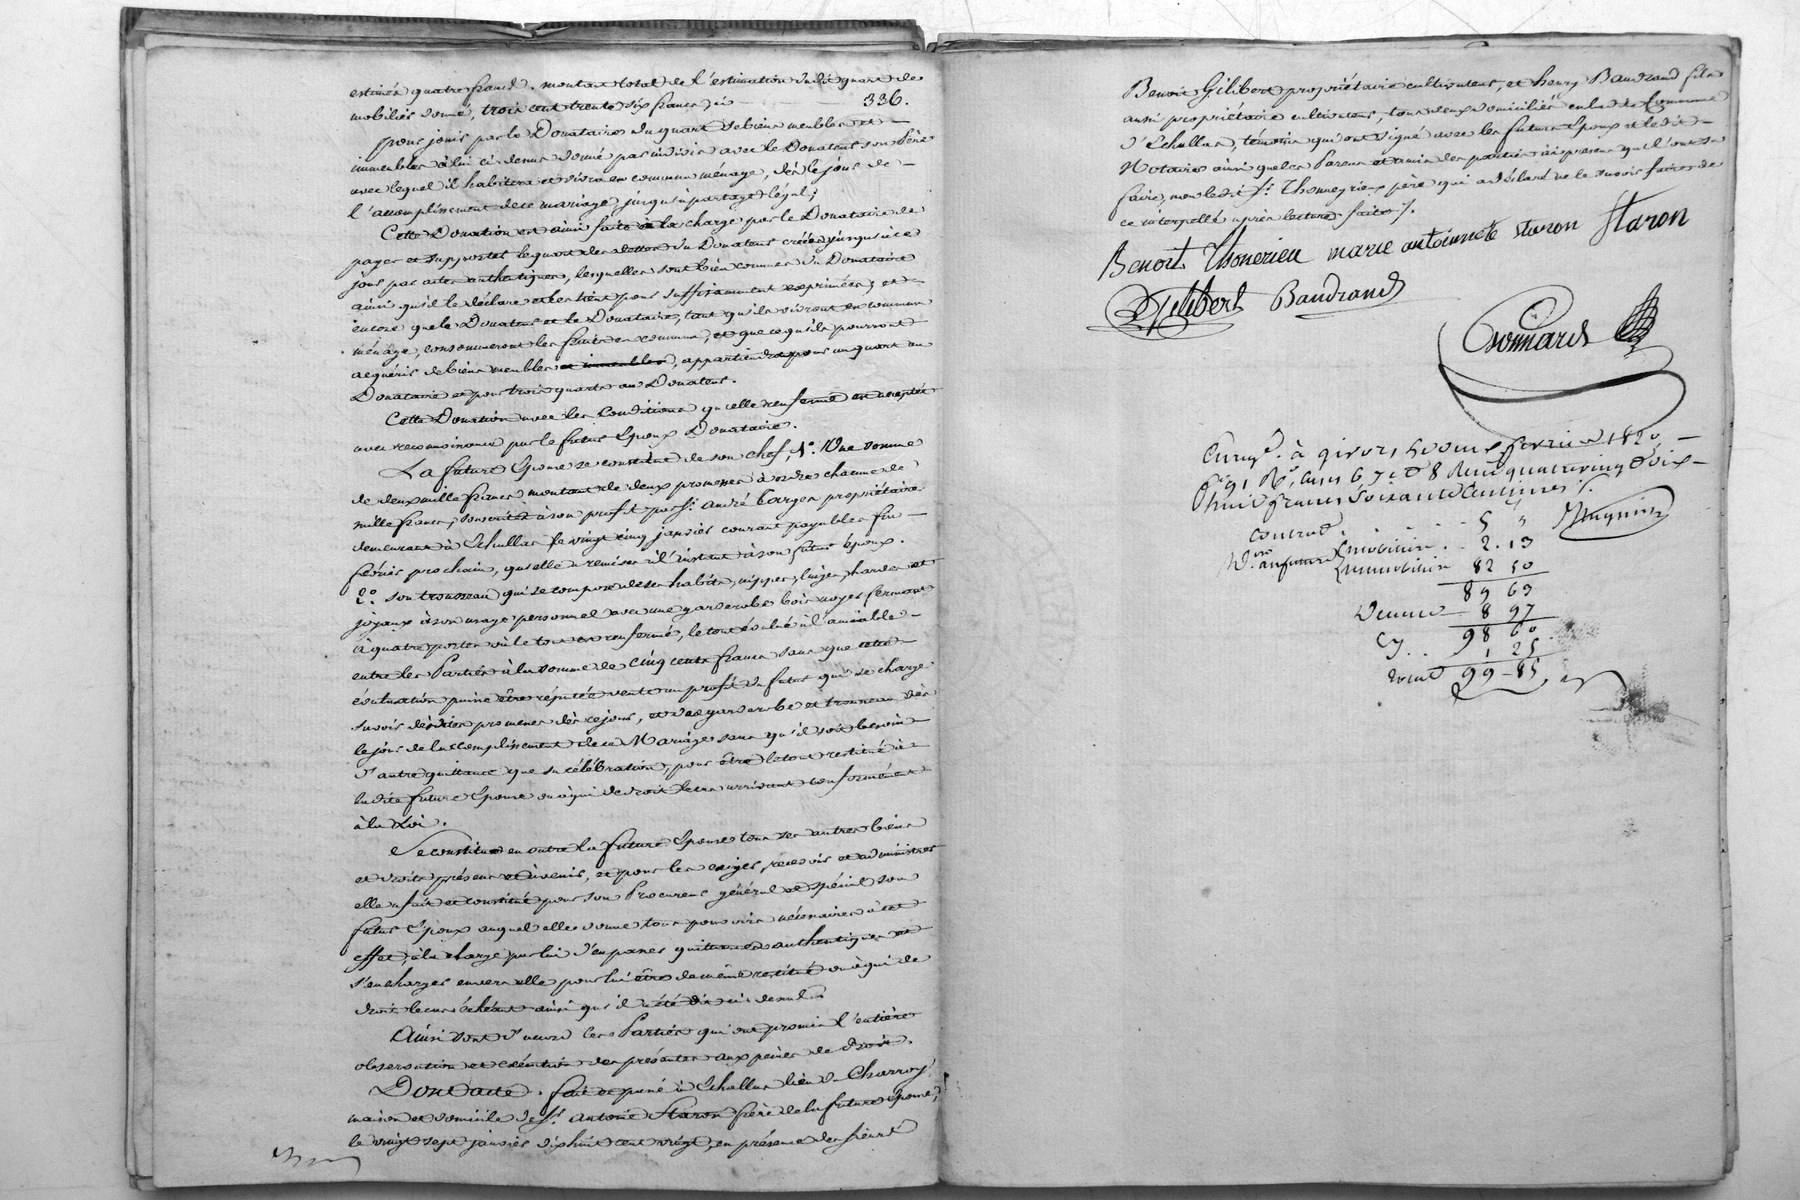 estimés quatre francs. montant total de l'estimation dudit quart de
mobilier donné, trois cent trente six francs ci — 336.
pour jouir par le Donataire du quart de biens meubles et —
immeubles à lui ci dessus donné par indivis avec le Donateur son Père
avec lequel il habitera et vivra en commun ménage, dès le jour de —
l'accomplissement de ce mariage, jusqu'à partage légal;
Cette Donation est ainsi faite à la charge par le Donataire de
payer et supporter le quart des dettes du Donateur créées jusqu'à ce
jour par actes authentiques, lesquelles sont bien connues du Donataire
ainsi qu'il le déclare et les tient pour suffisamment exprimées; et —
encore que le Donateur et le Donataire, tant qu'ils vivront en commun
ménage, consommeront les fruits en commun, et que ce qu'ils pourront
acquérir de biens meubles et immeubles, appartiendra pour un quart au
Donataire et pour trois quarts au Donateur.
Cette Donation avec les Conditions qu'elle renferme est acceptée
avec reconnoissance par le futur Epoux Donataire.
La future Epouse se constitue de son chef, 1.° Une somme
de deux mille francs montant de deux promesses à ordre chacune de
mille francs, souscrites à son profit par S.r André Bourgea propriétaire
demeurant à Echallas le vingt cinq janvier courant payables fin —
février prochain, qu'elle a remises à l'instant à son futur Epoux.
2.° son trousseau qui se compose de ses habits, nippes, linges, hardes et
joyaux à son usage personnel avec une garderobe bois noyer fermant
à quatre portes où le tout est renfermé, le tout évalué à l'amiable —
entre les Parties à la somme de cinq cents francs sans que cette
évaluation puisse être réputée vente au profit du futur qui se charge
savoir desdites promesses dès ce jour, et des garderobe et trousseau dès
le jour de l'accomplissement de ce Mariage sans qu'il soit besoin
d'autre quittance que sa célébration, pour être le tout restitué à
ladite future Epouse ou à qui de droit le cas arrivant conformément
à la Loi.
Se constitue en outre la future Epouse tous ses autres biens
et droits présens et à venir, et pour les exiger, recevoir et administrer
elle a fait et constitué pour son Procureur général et spécial son
futur Epoux auquel elle donne tous pouvoirs nécessaires à cet
effet, à la charge par lui d'en passer quittances authentiques et
s'en charger envers elle pour lui être de même restitué ou à qui de
droit le cas échéant ainsi qu'il a été dit ci dessus.
Ainsi sont d'accord les Parties qui ont promis l'entière
observation et exécution des présentes aux peines de Droit.
Dont acte. fait et passé à Echallas lieu de Charroy
maison et domicile de S.r Antoine Staron père de la future Epouse,
le vingt sept janvier dix huit cent vingt, en présence des sieurs
Benoit Gilibert propriétaire cultivateur, et henry Baudrand fils
aussi propriétaire cultivateur, tous deux domiciliés en la dite Commune
d'Echallas, témoins qui ont signé avec les futurs Epoux et ledit —
Notaire ainsi que les Parens et amis des parties à ce présens qui l'ont su
faire, non ledit S.r Thonneyrieux père qui a déclaré ne le savoir faire de
ce interpellé après lecture faite ./.
Benoit Thonerieu marie antoinnete staron Staron
Gilibert Baudrand
Bonnard
Enreg.é à givors le onze fevrier 1820 —
f.° 91 R.° Cases 6 7 et 8 Reçu quatre vingt dix —
huit francs soixante Centimes ./.
Contrat . 5 "
mobilière . 2 . 13
D.on au futur immobilière 82 50
89 63
Decime 8 97
Cy . . 98 60
1 25
Total 99 - 85